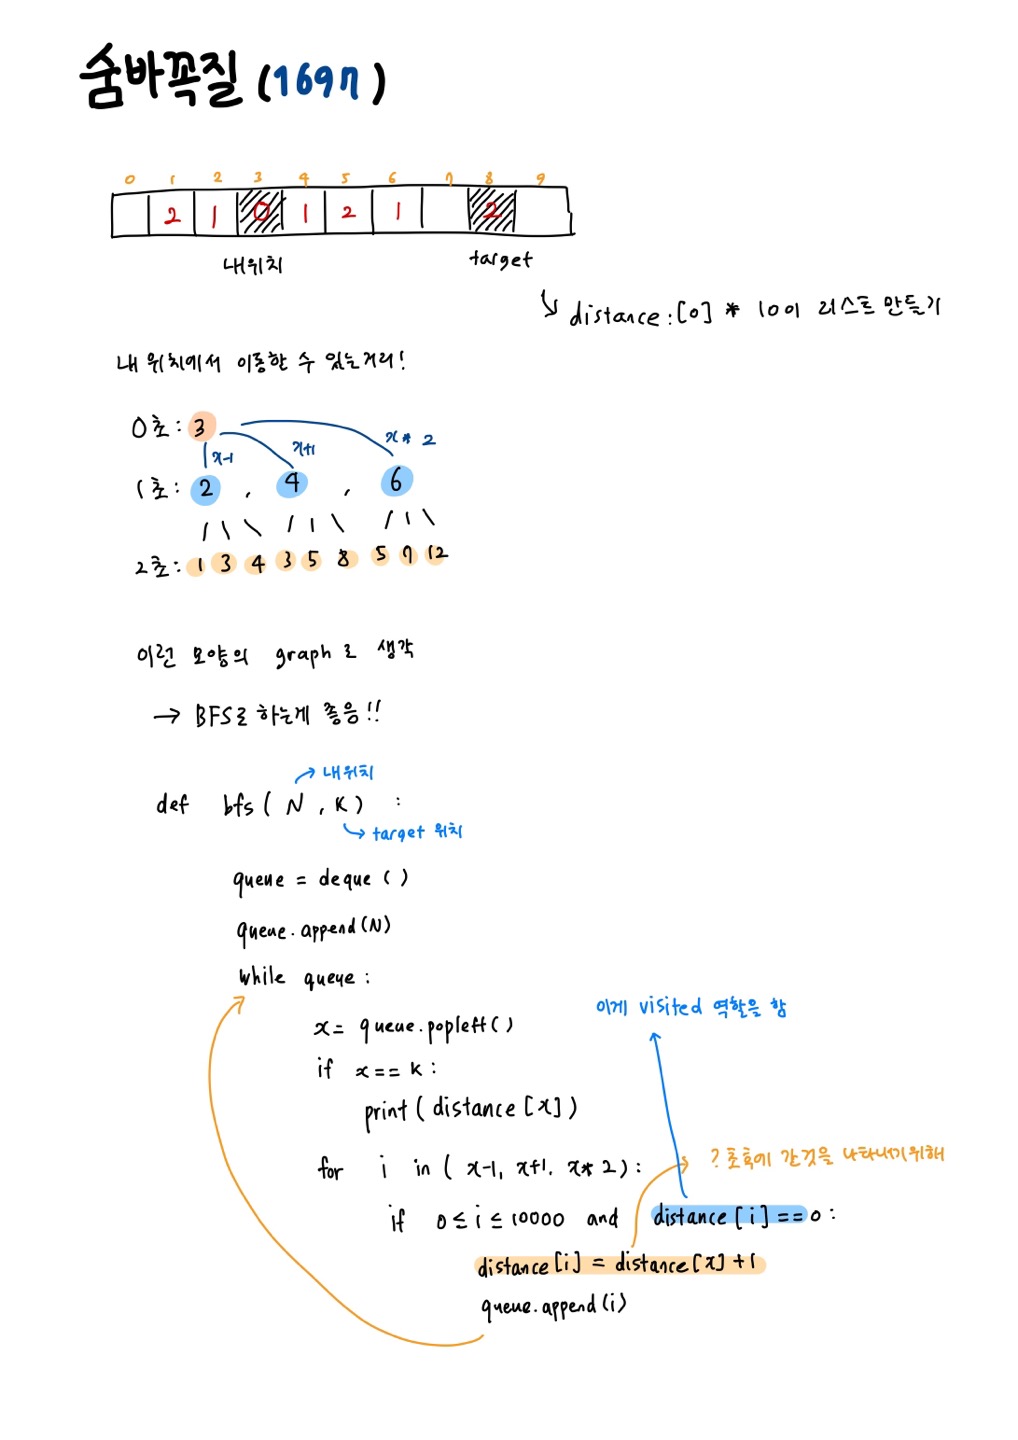 숨바꼭질 (1697)
0 1 2 3 4 5 6 7 8 9
2 1 0 1 2 1 2
내위치 target
distance : [0] * 10이 리스트 만들기
내 위치에서 이동할 수 있는거리!
0초 : 3
x-1 x+1 x * 2
1초 : 2 , 4 , 6
2초 : 1 3 4 3 5 8 5 7 12
이런 모양의 graph로 생각
→ BFS로 하는게 좋음!!
내위치
def bfs ( N , K ) :
target 위치
queue = deque ( )
queue.append(N)
while queue :
이게 visited 역할을 함
x = queue.popleft( )
if x == K :
print ( distance [x] )
for i in ( x-1, x+1. x * 2 ) :
? 초후에 간것을 나타내기위해
if 0 ≤ i ≤ 10000 and distance [ i ] == 0 :
distance [i] = distance [x] + 1
queue.append (i)